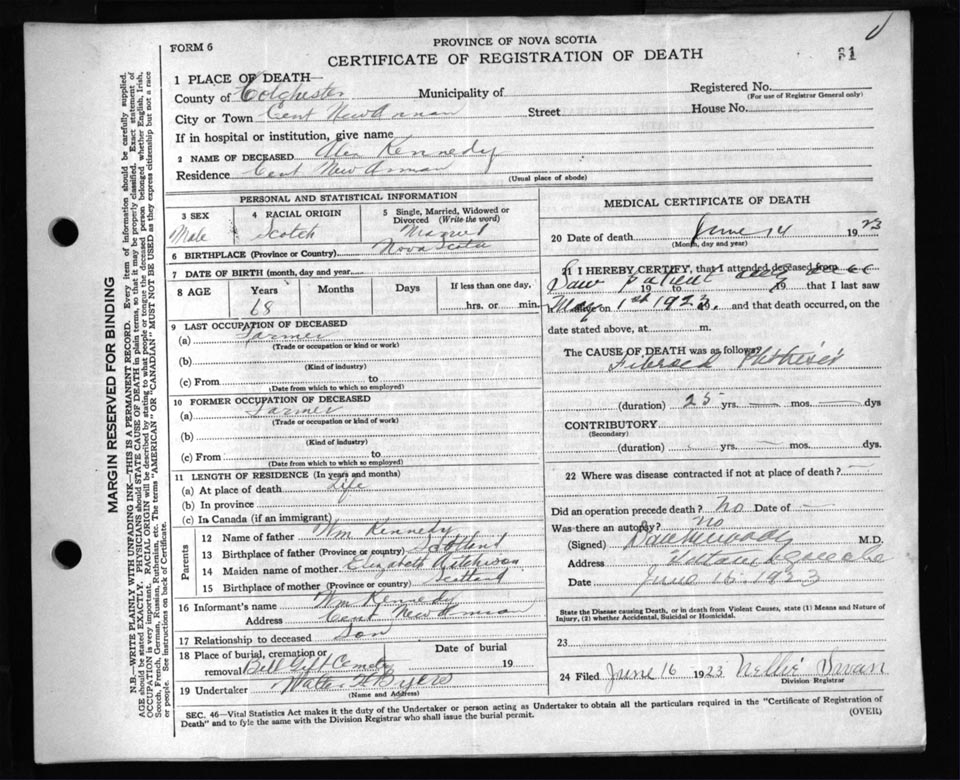 FORM 6
PROVINCE OF NOVA SCOTIA
CERTIFICATE OF REGISTRATION OF DEATH
1 PLACE OF DEATH—
County of Colchester Municipality of
Registered No.
(For use of Registrar General only)
City or Town Cent New Annan Street House No.
If in hospital or institution, give name
2 NAME OF DECEASED Alex Kennedy
Residence Cent New Annan
(Usual place of abode)
PERSONAL AND STATISTICAL INFORMATION
3 SEX Male
4 RACIAL ORIGIN Scotch
5 Single, Married, Widowed or Divorced (Write the word) Married
6 BIRTHPLACE (Province or Country) Nova Scotia
7 DATE OF BIRTH (month, day and year)
8 AGE Years Months Days If less than one day,
68 hrs. or min.
9 LAST OCCUPATION OF DECEASED
(a) Farmer
(Trade or occupation or kind or work)
(b)
(Kind of industry)
(c) From to
(Date from which to which so employed)
10 FORMER OCCUPATION OF DECEASED
(a) Farmer
(Trade or occupation or kind of work)
(b)
(Kind of industry)
(c) From to
(Date from which to which so employed)
11 LENGTH OF RESIDENCE (In years and months)
(a) At place of death Life
(b) In province
(c) In Canada (if an immigrant)
Parents
12 Name of father Wm Kennedy
13 Birthplace of father (Province or country) Scotland
14 Maiden name of mother Elizabeth
15 Birthplace of mother (Province or country) Scotland
16 Informant's name Wm Kennedy
Address Cent New Annan
17 Relationship to deceased Son
18 Place of burial, cremation or removal Date of burial 19
19 Undertaker
(Name and Address)
MEDICAL CERTIFICATE OF DEATH
20 Date of death June 14 1923
(Month, day and year)
21 I HEREBY CERTIFY, that I attended deceased from
Saw patient 19 to 19 that I last saw
May on 1st 1923 19 and that death occurred, on the
date stated above, at m.
The CAUSE OF DEATH was as follows?
Fibroid Phthisis
(duration) 25 yrs. mos. dys
CONTRIBUTORY
(Secondary)
(duration) yrs. mos. dys.
22 Where was disease contracted if not at place of death?
Did an operation precede death? No Date of
Was there an autopsy? No
(Signed) M.D.
Address
Date June 15. 1923
State the Disease causing Death, or in death from Violent Causes, state (1) Means and Nature of
Injury, (2) whether Accidental, Suicidal or Homicidal.
23
24 Filed June 16 1923 Nellie Swan
Division Registrar
SEC. 46—Vital Statistics Act makes it the duty of the Undertaker or person acting as Undertaker to obtain all the particulars required in the "Certificate of Registration of
Death" and to fyle the same with the Division Registrar who shall issue the burial permit.
(OVER)
MARGIN RESERVED FOR BINDING
N.B.—WRITE PLAINLY WITH UNFADING INK—THIS IS A PERMANENT RECORD. Every item of information should be carefully supplied.
AGE should be stated EXACTLY. PHYSICIANS should STATE CAUSE OF DEATH in plain terms, so that it may be properly classified. Exact statement of
OCCUPATION is very important. RACIAL ORIGIN will be described by stating to what people or tongue the deceased person belonged whether English, Irish,
Scotch, French, German, Russian, Ruthenian, etc. The terms "AMERICAN" OR "CANADIAN" MUST NOT BE USED as they express citizenship but not a race
or people. See instructions on back of Certificate.